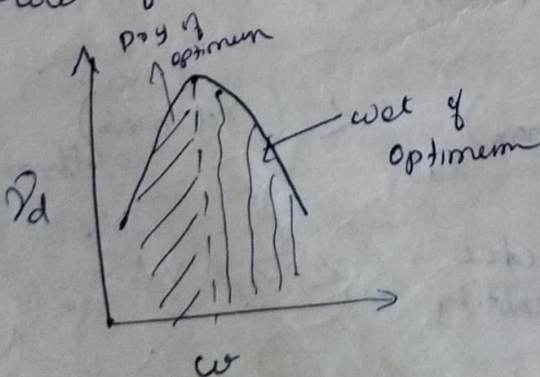 Dry of
optimum
wet of
optimum
γd
w